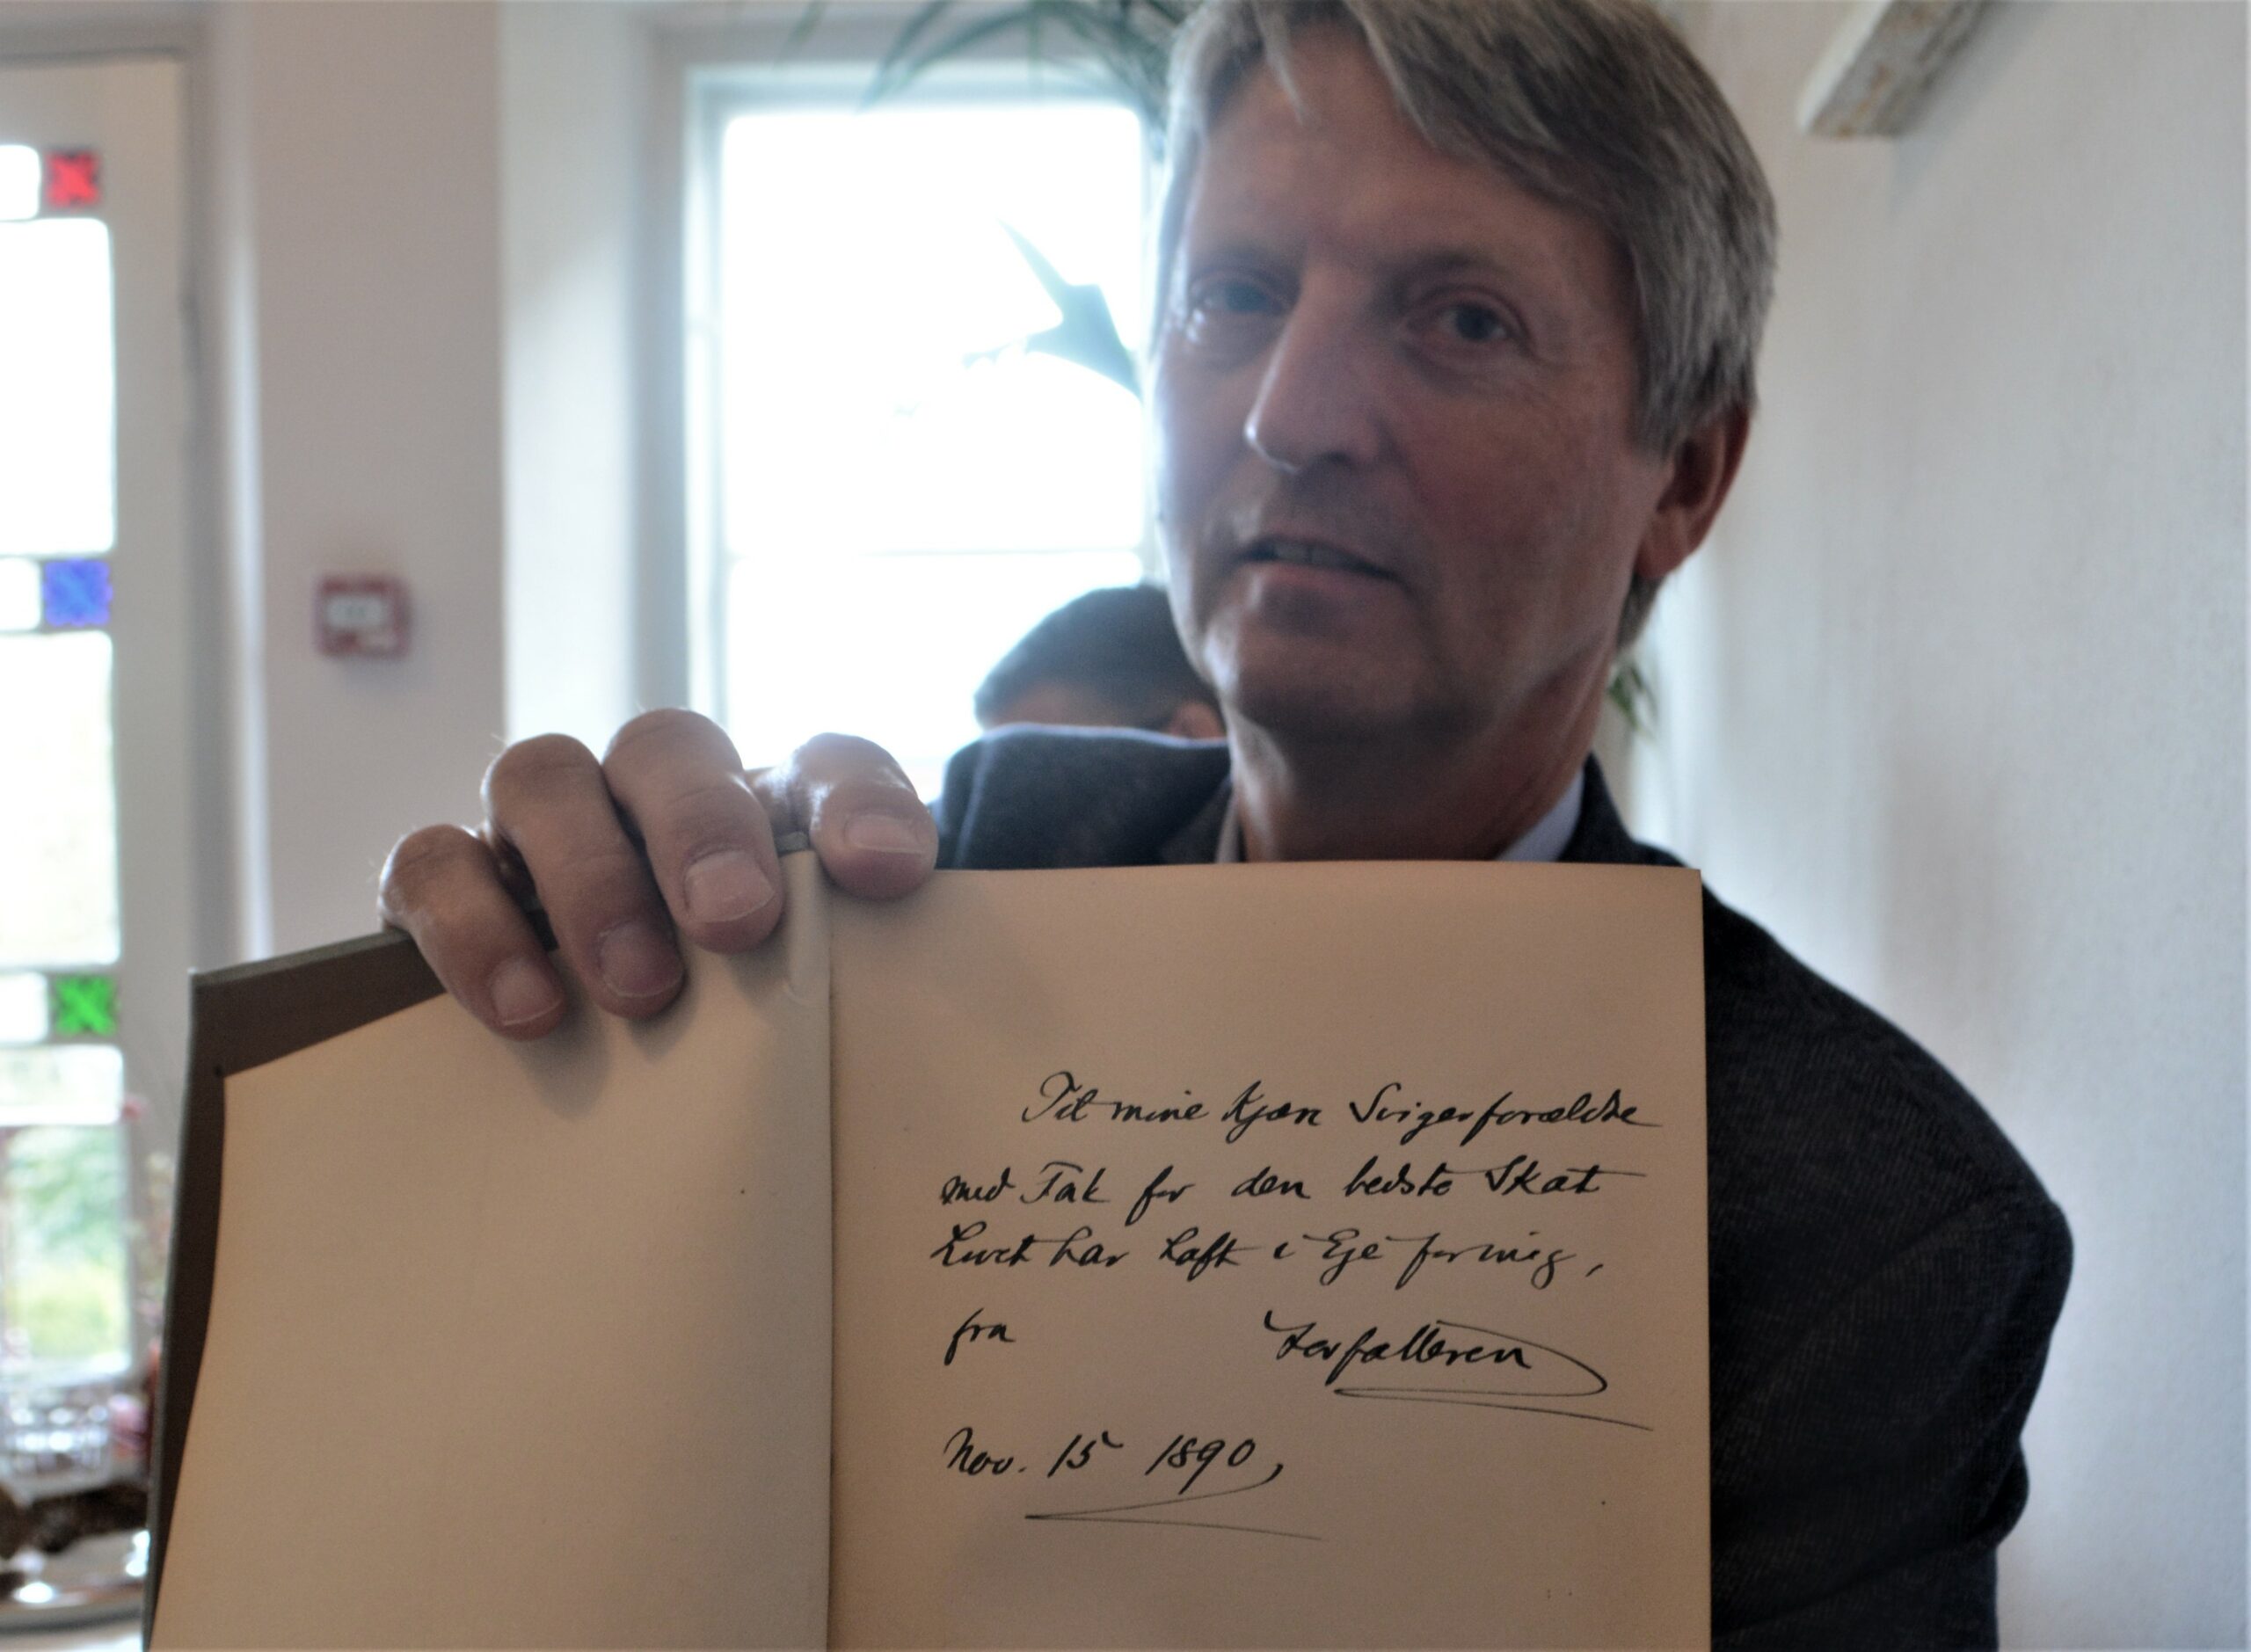 Til mine kjære Svigerforældre
med Tak for den bedste Skat
Livet har haft i Eje for mig,
fra Forfatteren
Nov. 15 1890,